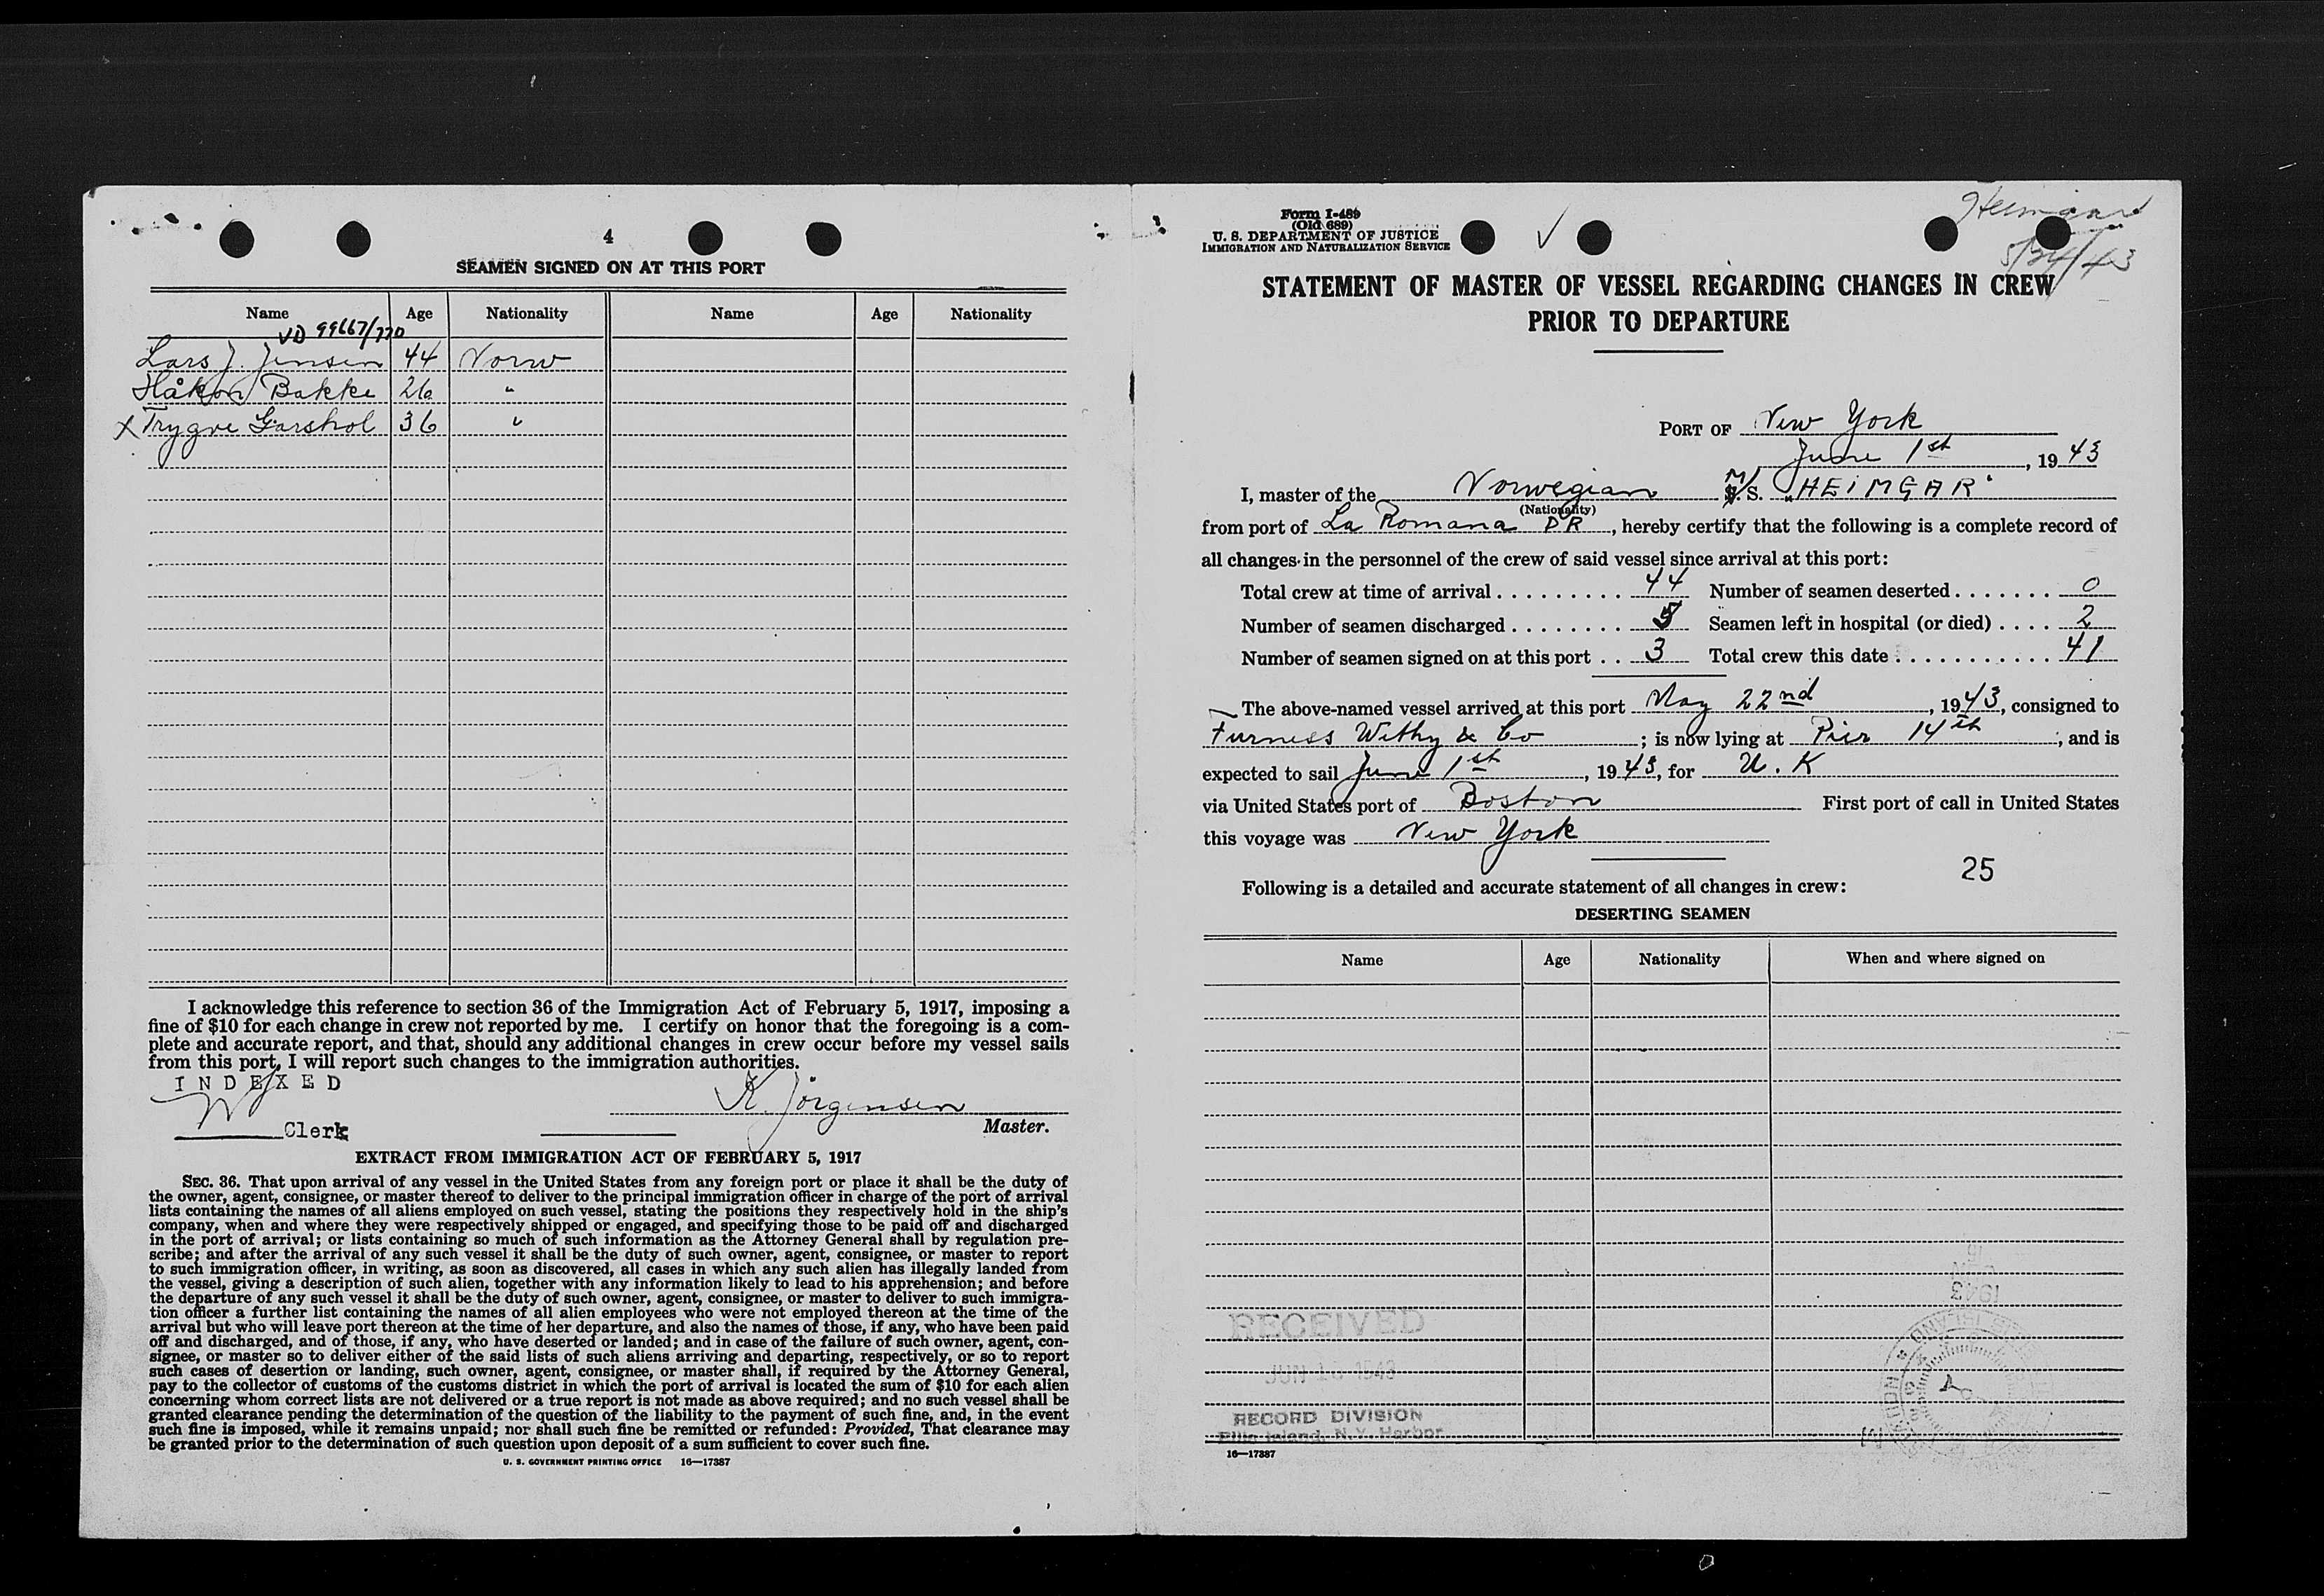 4
SEAMEN SIGNED ON AT THIS PORT
Name Age Nationality Name Age Nationality
VD 99667/770
Lars J. Jensen 44 Norw
Håkon Bakke 26 "
x Trygve Garshol 36 "
I acknowledge this reference to section 36 of the Immigration Act of February 5, 1917, imposing a
fine of $10 for each change in crew not reported by me. I certify on honor that the foregoing is a com-
plete and accurate report, and that, should any additional changes in crew occur before my vessel sails
from this port, I will report such changes to the immigration authorities.
INDEXED
K. Jörgensen
Clerk
Master.
EXTRACT FROM IMMIGRATION ACT OF FEBRUARY 5, 1917
SEC. 36. That upon arrival of any vessel in the United States from any foreign port or place it shall be the duty of
the owner, agent, consignee, or master thereof to deliver to the principal immigration officer in charge of the port of arrival
lists containing the names of all aliens employed on such vessel, stating the positions they respectively hold in the ship's
company, when and where they were respectively shipped or engaged, and specifying those to be paid off and discharged
in the port of arrival; or lists containing so much of such information as the Attorney General shall by regulation pre-
scribe; and after the arrival of any such vessel it shall be the duty of such owner, agent, consignee, or master to report
to such immigration officer, in writing, as soon as discovered, all cases in which any such alien has illegally landed from
the vessel, giving a description of such alien, together with any information likely to lead to his apprehension; and before
the departure of any such vessel it shall be the duty of such owner, agent, consignee, or master to deliver to such immigra-
tion officer a further list containing the names of all alien employees who were not employed thereon at the time of the
arrival but who will leave port thereon at the time of her departure, and also the names of those, if any, who have been paid
off and discharged, and of those, if any, who have deserted or landed; and in case of the failure of such owner, agent, con-
signee, or master so to deliver either of the said lists of such aliens arriving and departing, respectively, or so to report
such cases of desertion or landing, such owner, agent, consignee, or master shall, if required by the Attorney General,
pay to the collector of customs of the customs district in which the port of arrival is located the sum of $10 for each alien
concerning whom correct lists are not delivered or a true report is not made as above required; and no such vessel shall be
granted clearance pending the determination of the question of the liability to the payment of such fine, and, in the event
such fine is imposed, while it remains unpaid; nor shall such fine be remitted or refunded: Provided, That clearance may
be granted prior to the determination of such question upon deposit of a sum sufficient to cover such fine.
U. S. GOVERNMENT PRINTING OFFICE 16—17387
Form I-489
(Old 689)
U. S. DEPARTMENT OF JUSTICE
IMMIGRATION AND NATURALIZATION SERVICE
Heimgar
5/24/43
STATEMENT OF MASTER OF VESSEL REGARDING CHANGES IN CREW
PRIOR TO DEPARTURE
PORT OF New York
June 1st, 1943
I, master of the Norwegian M/S. "HEIMGAR"
(Nationality)
from port of La Romana DR, hereby certify that the following is a complete record of
all changes in the personnel of the crew of said vessel since arrival at this port:
Total crew at time of arrival . . . . . . . . . 44 Number of seamen deserted . . . . . . . 0
Number of seamen discharged . . . . . . . . 5 Seamen left in hospital (or died) . . . . 2
Number of seamen signed on at this port . . 3 Total crew this date . . . . . . . . . . . . 41
The above-named vessel arrived at this port May 22nd, 1943, consigned to
Furness Withy & Co; is now lying at Pier 14th, and is
expected to sail June 1st, 1943, for U.K
via United States port of Boston First port of call in United States
this voyage was New York
25
Following is a detailed and accurate statement of all changes in crew:
DESERTING SEAMEN
Name Age Nationality When and where signed on
1943
RECEIVED
JUN 16 1943
RECORD DIVISION
Ellis Island, N.Y. Harbor
16—17387